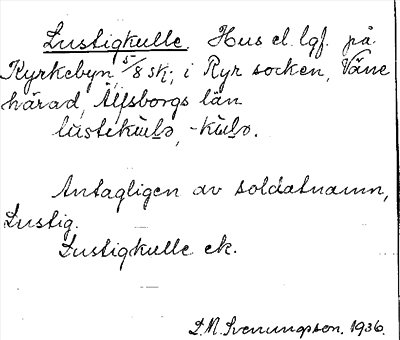 Lustigkulle. Hus el. lgf. på
Kyrkebyn, 5/8 sk; i Ryr socken, Väne
härad, Älfsborgs län
Antagligen av soldatnamn,
Lustig.
Lustigkulle ek.
D.N. Svenungsson. 1936.